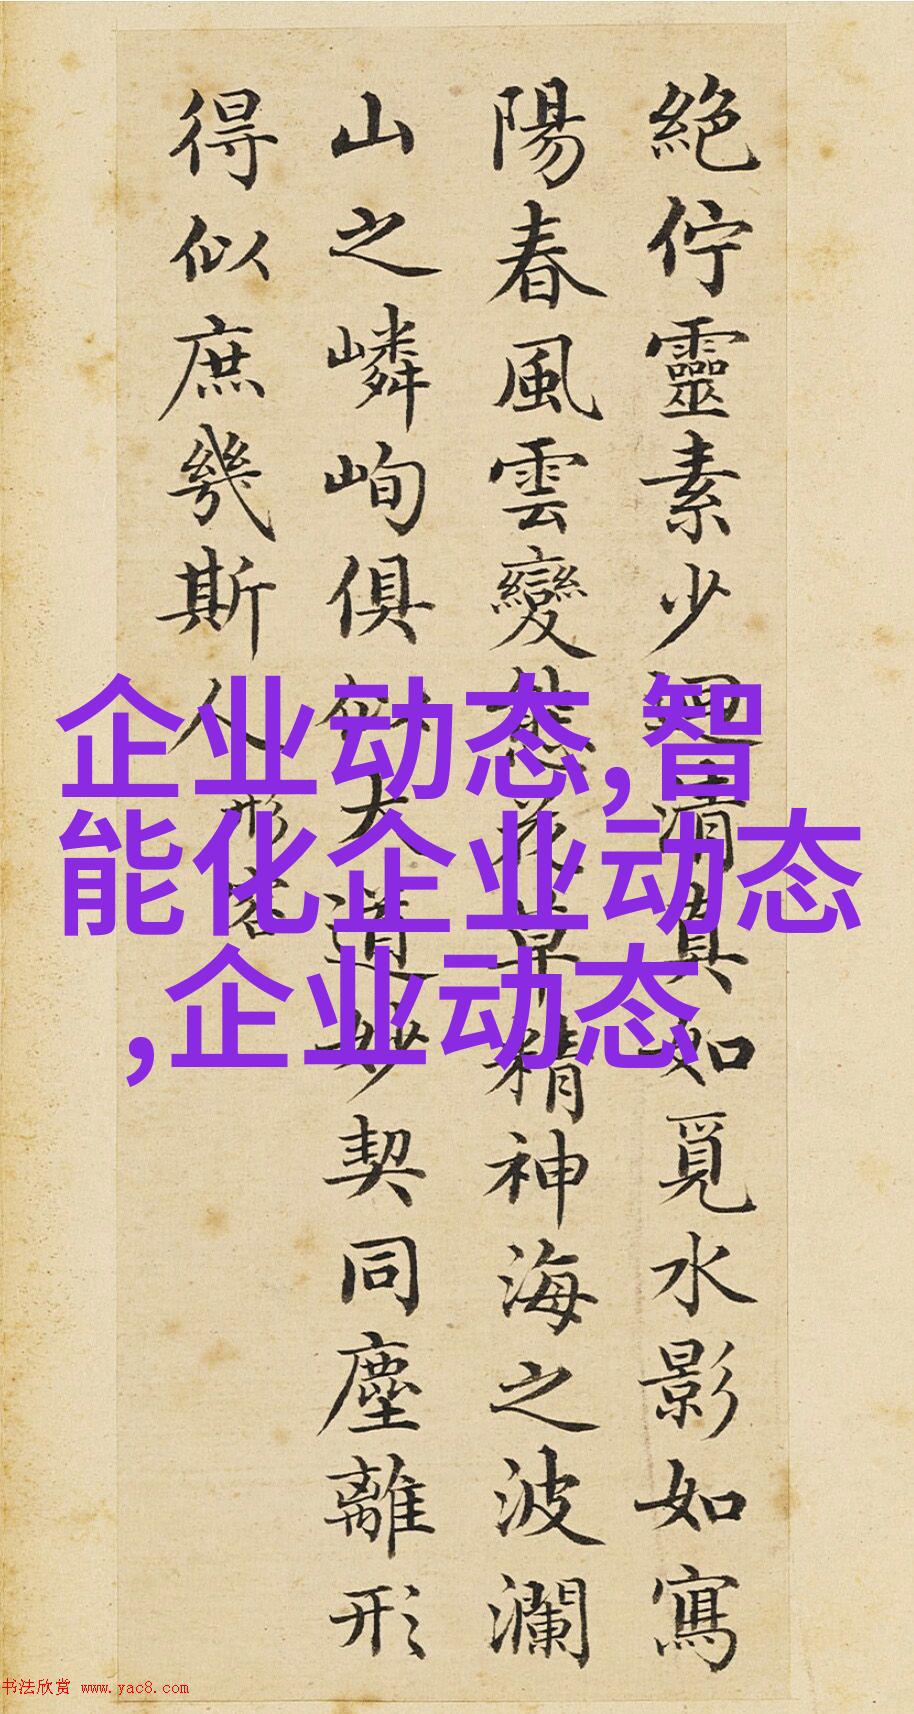 絕佇靈素少迴清真如覓水影如寫
陽春風雲變態花草精神海之波瀾
山之嶙峋俱似大道妙契同塵離形
得似庶幾斯人
形容
企业动态,智
能化企业动态
,企业动态
书法欣赏 www.yac8.com